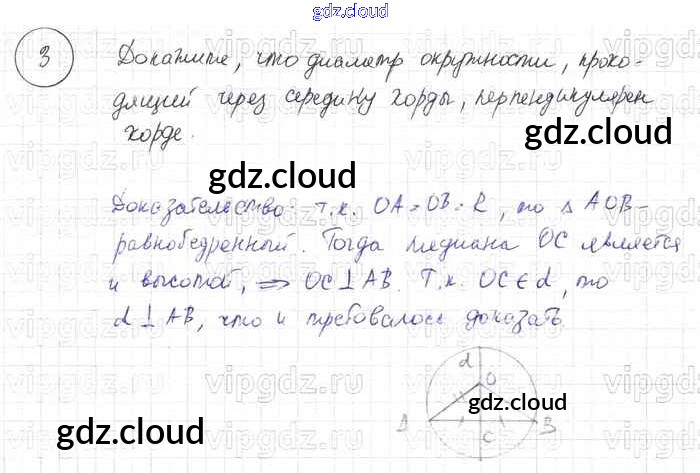 gdz.cloud
3 Докажите, что диаметр окружности, прохо-
дящий через середину хорды, перпендикулярен
хорде.
gdz.cloud
gdz.cloud
Доказательство: т.к. OA=OB=R, то △ AOB-
равнобедренный. Тогда медиана OC является
и высотой, ⇒ OC⊥AB. Т.к. OC∈d, то
d⊥AB, что и требовалось доказать.
d
O
gdz.cloud
A C B
gdz.cloud
vipgdz.ru